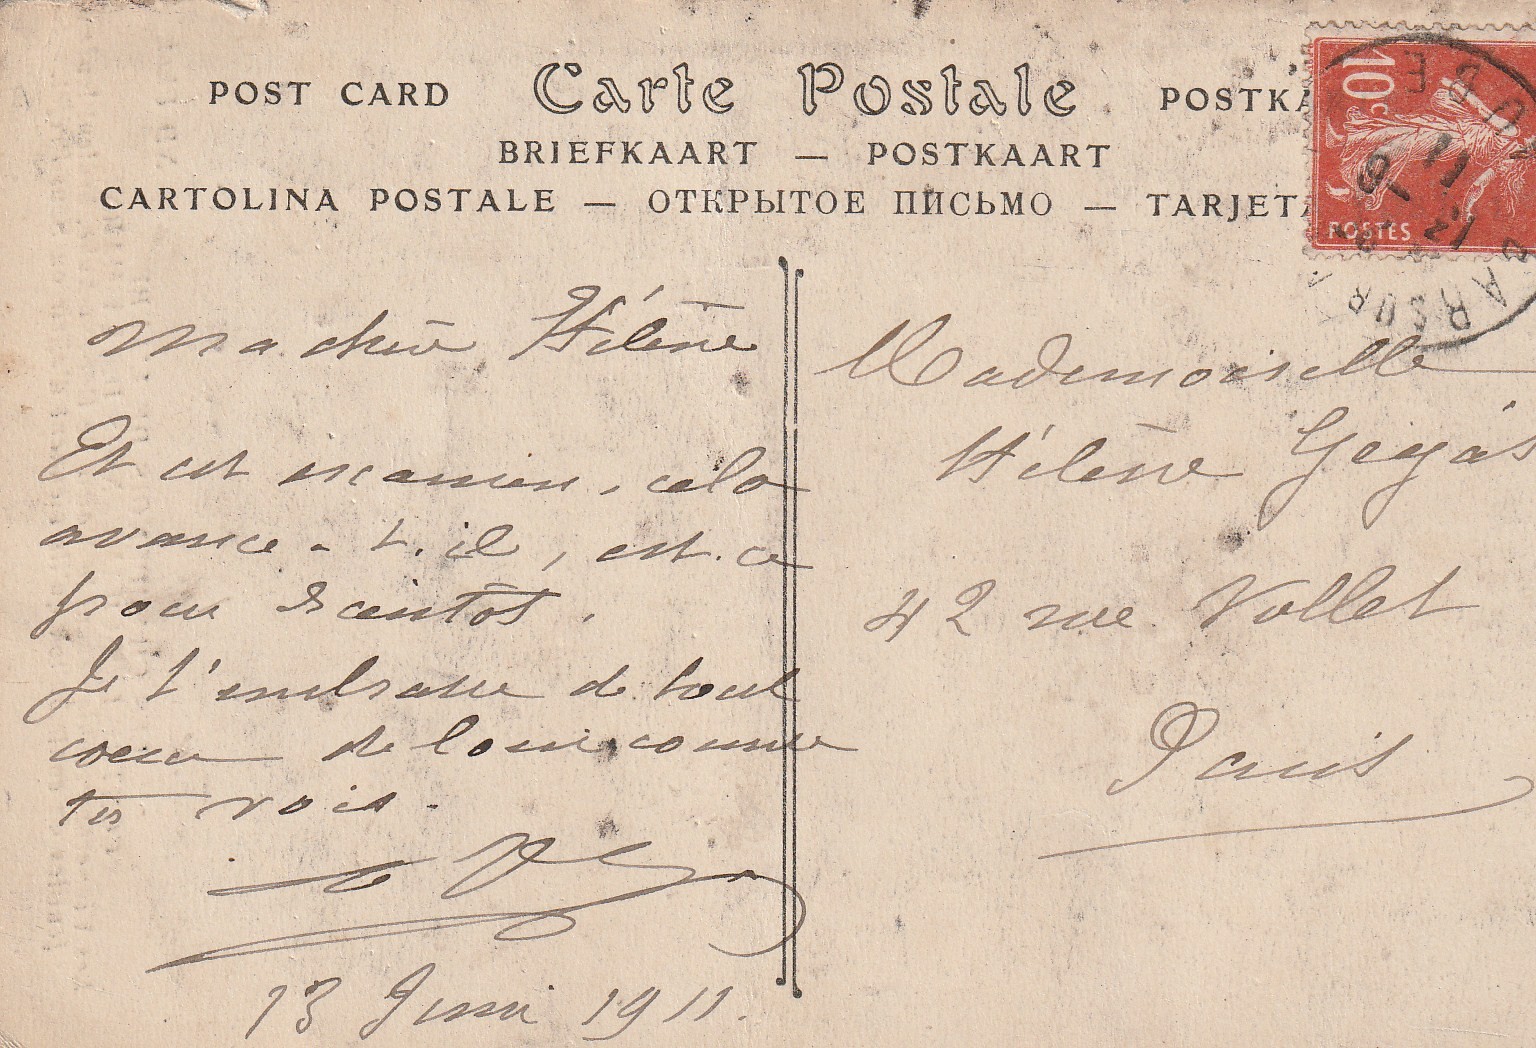 POST CARD Carte Postale POSTKA
BRIEFKAART — POSTKAART
CARTOLINA POSTALE — ОТКРЫТОЕ ПИСЬМО — TARJETA
10c
POSTES
BAR SUR AUBE
Ma chère Hélène
Et cet examen, cela
avance-t-il, est-ce
pour bientôt.
Je t'embrasse de tout
coeur de loin comme
tu vois.
13 Juin 1911.
Mademoiselle
Hélène
42 rue Vollet
Paris